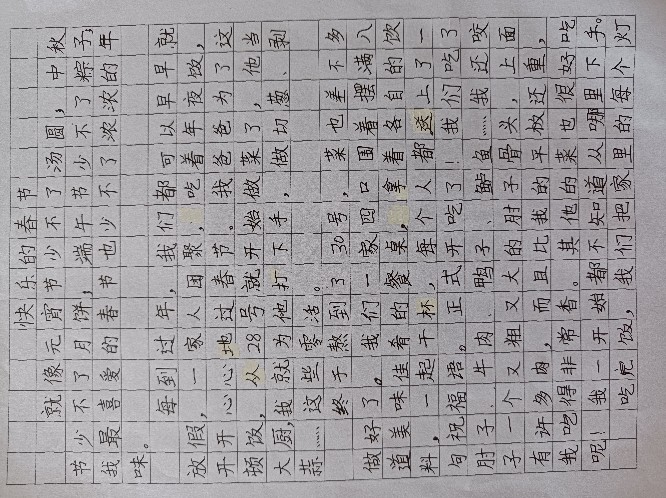 快乐的春节
就像元宵节少不了汤圆，中秋
节少不了月饼，端午节少不了粽子；
我最喜爱的春节也少不了浓浓的年
味。
每到过年，我们都可以早早就
放假，一家人团聚，吃着年夜饭，
开开心心地过春节。我爸爸为了这
顿饭，从28号就开始做菜了，他当
大厨，我就为他打下手，做切葱、剥
蒜……这些零活。
终于熬到了30号，菜也差不多
做好了。我们一家四口围着摆满八
道美味佳肴的餐桌，拿着各自的饮
料，一起干杯，每个人都送上了一
句祝福语。正式开吃了！我们吃了
肘子、牛肉、鸭子、鱼……我还咬
了一个又粗又大的肘子骨头，上面
有许多肉，而且比我的平板还重，
我吃得非常香。其他的菜也很好吃
呢！我一开始都不知道从哪里下手。
吃完饭，我们把家里的每个灯